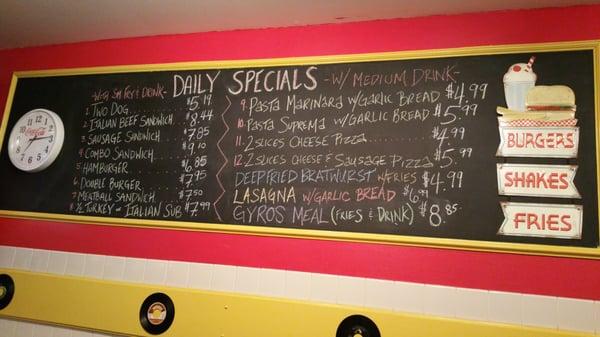 DAILY SPECIALS
-WITH SM FRY & DRINK-
1 TWO DOG $5.19
2 ITALIAN BEEF SANDWICH $8.44
3 SAUSAGE SANDWICH $7.85
4 COMBO SANDWICH $9.10
5 HAMBURGER $6.85
6 DOUBLE BURGER $7.95
7 MEATBALL SANDWICH $7.50
8 ½ TURKEY or ITALIAN SUB $7.99
-W/ MEDIUM DRINK-
9. PASTA MARINARA W/GARLIC BREAD $4.99
10. PASTA SUPREMA W/GARLIC BREAD $5.99
11. 2 SLICES CHEESE PIZZA $4.99
12 2 SLICES CHEESE & SAUSAGE PIZZA $5.99
DEEP FRIED BRATWURST W/FRIES $4.99
LASAGNA W/GARLIC BREAD $6.99
GYROS MEAL (FRIES & DRINK) $8.85
BURGERS
SHAKES
FRIES
Coca-Cola